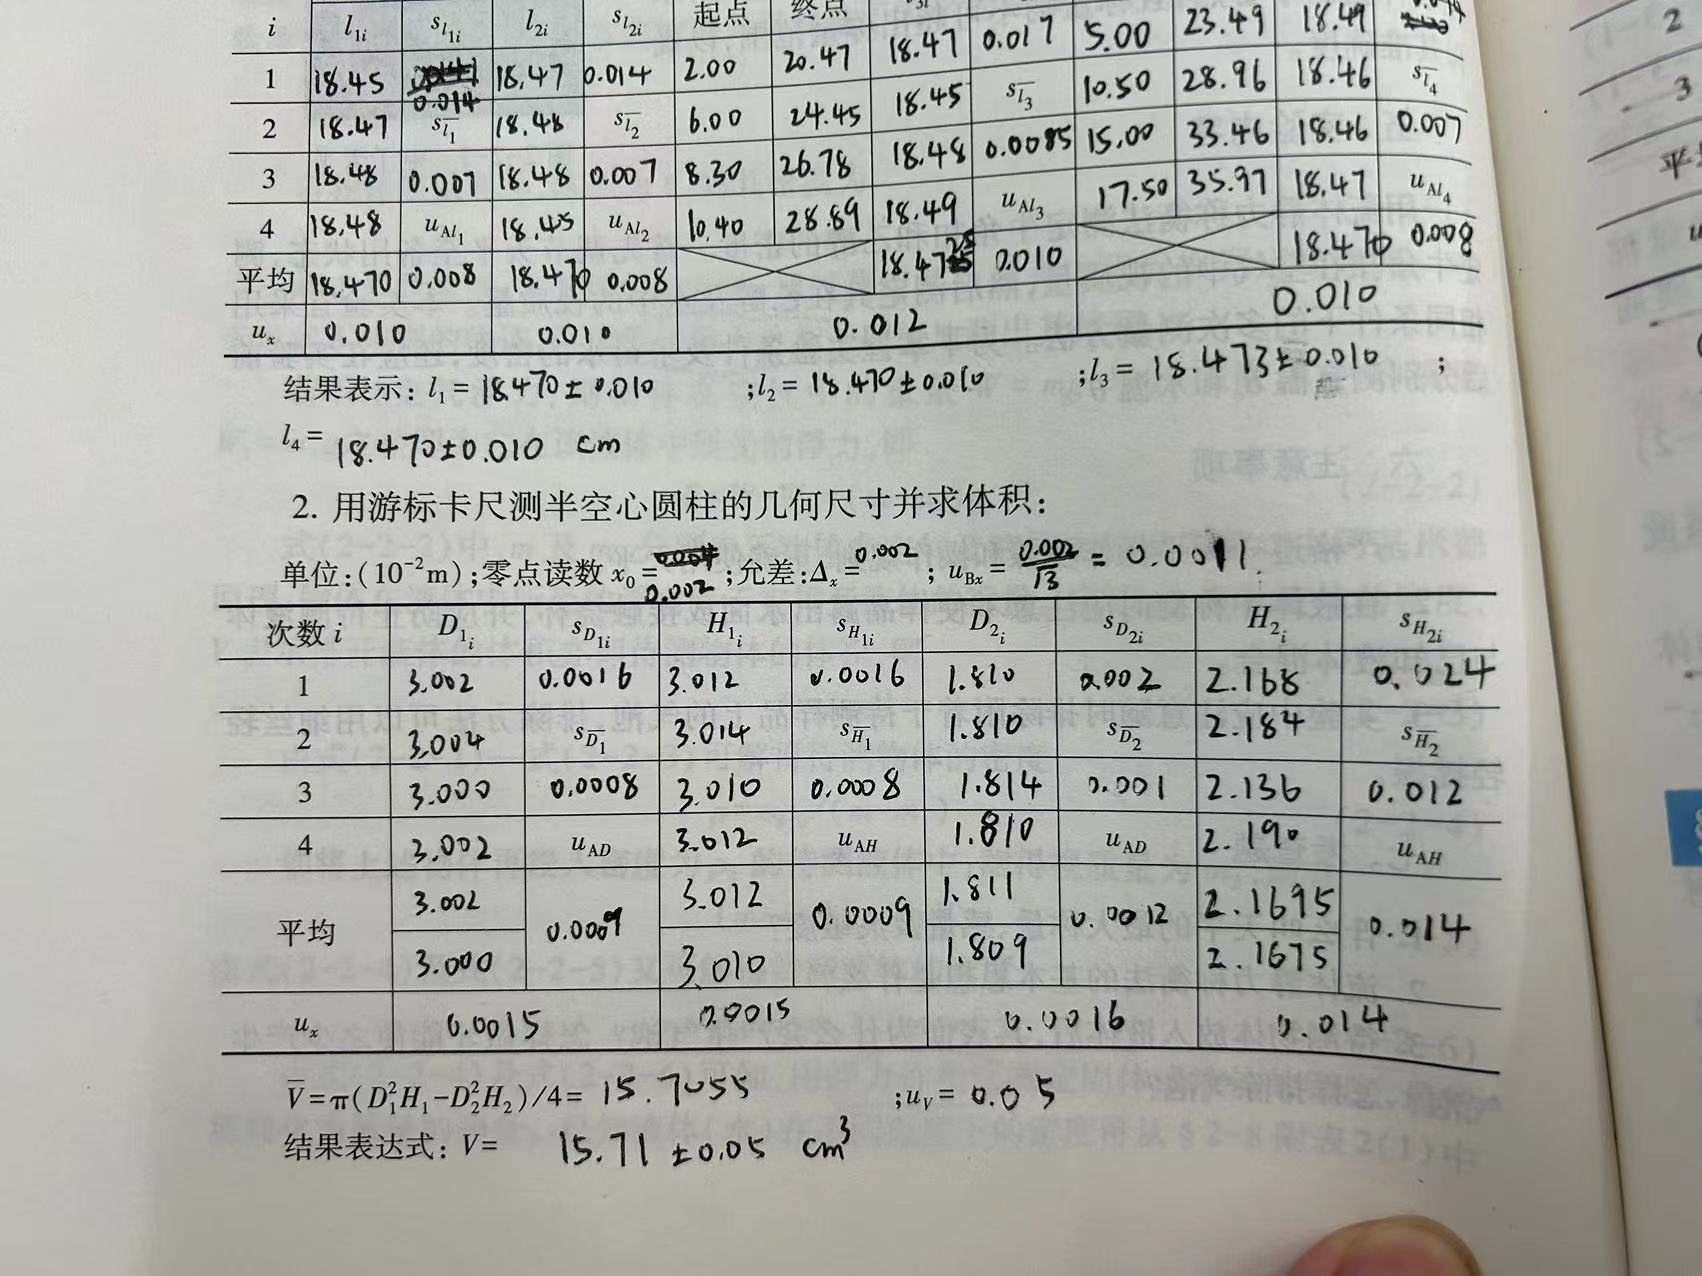 i l₁ᵢ s_l₁ᵢ l₂ᵢ s_l₂ᵢ 起点 终点
1 18.45 0.014 18.47 0.014 2.00 20.47 18.47 0.017 5.00 23.49 18.49
2 18.47 s_l̄₁ 18.48 s_l̄₂ 6.00 24.45 18.45 s_l̄₃ 10.50 28.96 18.46 s_l̄₄
3 18.48 0.007 18.48 0.007 8.30 26.78 18.48 0.0085 15.00 33.46 18.46 0.007
4 18.48 u_Al₁ 18.45 u_Al₂ 10.40 28.89 18.49 u_Al₃ 17.50 35.97 18.47 u_Al₄
平均 18.470 0.008 18.470 0.008 18.4725 0.010 18.470 0.008
uₓ 0.010 0.010 0.012 0.010
结果表示: l₁ = 18.470±0.010 ;l₂ = 18.470±0.010 ;l₃ = 18.473±0.010 ;
l₄ = 18.470±0.010 cm
2. 用游标卡尺测半空心圆柱的几何尺寸并求体积:
单位:(10⁻²m);零点读数 x₀ = 0.002 ;允差:Δₓ = 0.002 ; u_Bx = 0.002/√3 = 0.0011
次数 i D₁ᵢ s_D₁ᵢ H₁ᵢ s_H₁ᵢ D₂ᵢ s_D₂ᵢ H₂ᵢ s_H₂ᵢ
1 3.002 0.0016 3.012 0.0016 1.810 0.002 2.168 0.024
2 3.004 s_D̄₁ 3.014 s_H̄₁ 1.810 s_D̄₂ 2.184 s_H̄₂
3 3.000 0.0008 3.010 0.0008 1.814 0.001 2.136 0.012
4 3.002 u_AD 3.012 u_AH 1.810 u_AD 2.190 u_AH
平均 3.002 0.0009 3.012 0.0009 1.811 0.0012 2.1695 0.014
3.000 3.010 1.809 2.1675
uₓ 0.0015 0.0015 0.0016 0.014
V̄=π(D₁²H₁−D₂²H₂)/4= 15.7055 ;u_V = 0.05
结果表达式: V= 15.71 ±0.05 cm³
2
3